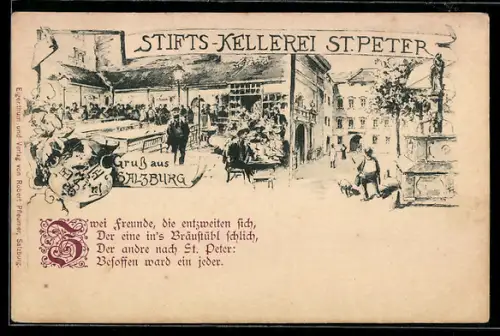 STIFTS-KELLEREI ST. PETER
Gruß aus
SALZBURG
Zwei Freunde, die entzweiten sich,
Der eine in's Bräustübl schlich,
Der andre nach St. Peter:
Besoffen ward ein jeder.
Eigenthum und Verlag von Robert Pfleumer, Salzburg.